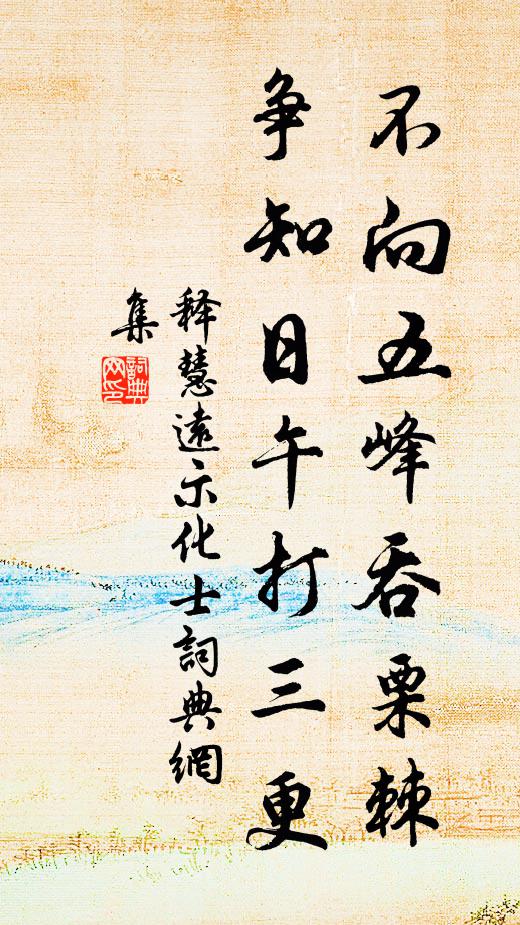 不向五峰吞栗棘
争知日午打三更
释慧遠示化士詞典網
集
詞典網印